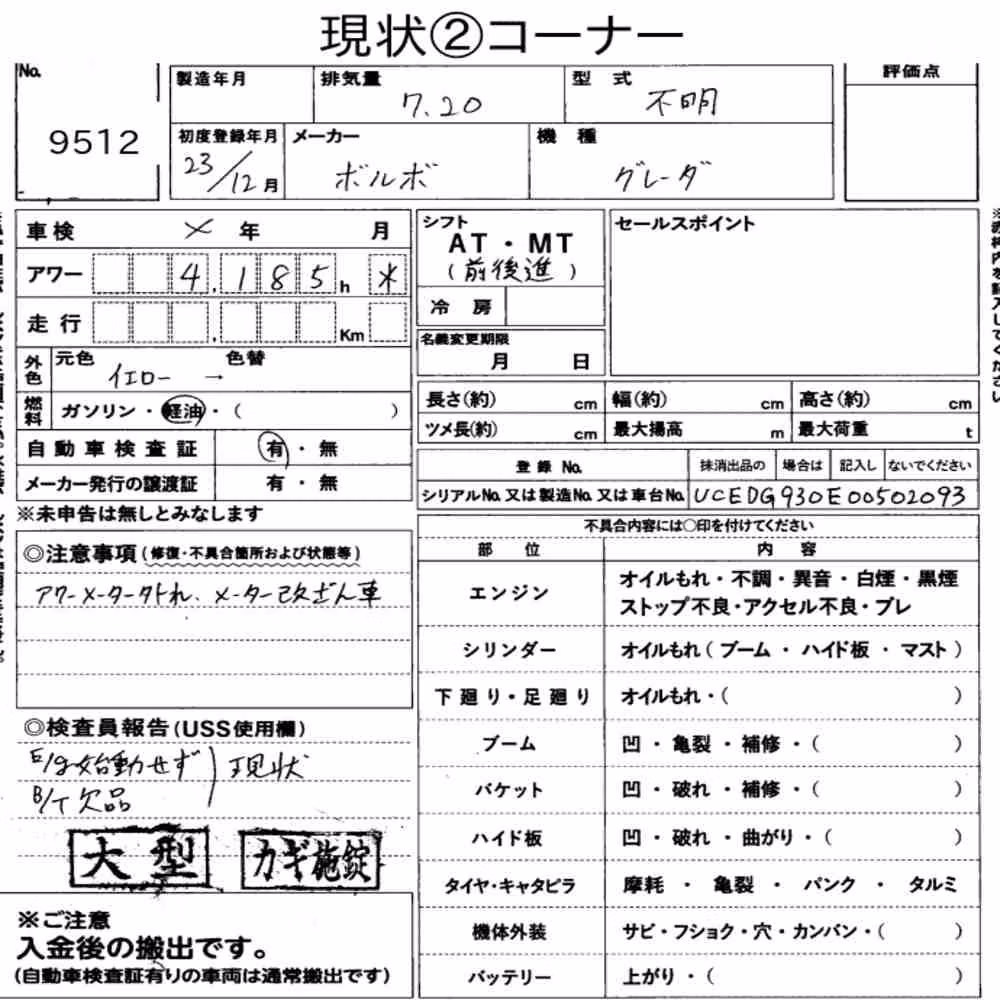 現状②コーナー
No.
9512
製造年月
排気量
7.20
型式
不明
評価点
初度登録年月
23/12月
メーカー
ボルボ
機種
グレーダ
車検 × 年 月
アワー 4,185h *
走行 , Km
外色 元色 イエロー → 色替
燃料 ガソリン・軽油・( )
自動車検査証 有・無
メーカー発行の譲渡証 有・無
※未申告は無しとみなします
シフト
AT・MT
(前後進)
冷房
名義変更期限
月 日
セールスポイント
長さ(約) cm 幅(約) cm 高さ(約) cm
ツメ長(約) cm 最大揚高 m 最大荷重 t
登録No. 抹消出品の 場合は 記入し ないでください
シリアルNo.又は製造No.又は車台No. UCEDG930E00502093
◎注意事項(修復・不具合箇所および状態等)
アワーメーター外れ、メーター改ざん車
◎検査員報告(USS使用欄)
E/g始動せず)現状
B/T欠品
大型
カギ施錠
※ご注意
入金後の搬出です。
(自動車検査証有りの車両は通常搬出です)
不具合内容には○印を付けてください
部位 内容
エンジン オイルもれ・不調・異音・白煙・黒煙
ストップ不良・アクセル不良・ブレ
シリンダー オイルもれ(ブーム・ハイド板・マスト)
下廻り・足廻り オイルもれ・( )
ブーム 凹・亀裂・補修・( )
バケット 凹・破れ・補修・( )
ハイド板 凹・破れ・曲がり・( )
タイヤ・キャタピラ 摩耗・亀裂・パンク・タルミ
機体外装 サビ・フショク・穴・カンバン・( )
バッテリー 上がり・( )